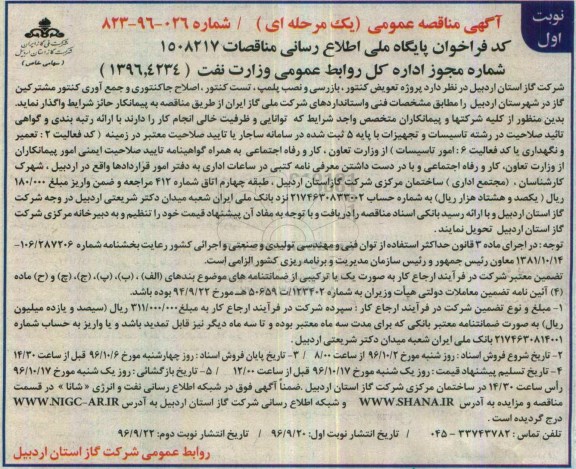 نوبت اول
آگهی مناقصه عمومی (یک مرحله ای) / شماره ۰۲۶-۹۶-۸۲۳
کد فراخوان پایگاه ملی اطلاع رسانی مناقصات ۱۵۰۸۲۱۷
شماره مجوز اداره کل روابط عمومی وزارت نفت (۱۳۹۶,۴۲۳۴)
شرکت ملی گاز ایران
شرکت گاز استان اردبیل
(سهامی خاص)
شرکت گاز استان اردبیل در نظر دارد پروژه تعویض کنتور، بازرسی و نصب پلمپ، تست کنتور، اصلاح جاکنتوری و جمع آوری کنتور مشترکین
گاز در شهرستان اردبیل را مطابق مشخصات فنی و استانداردهای شرکت ملی گاز ایران از طریق مناقصه به پیمانکار حائز شرایط واگذار نماید.
بدین منظور از کلیه شرکتها و پیمانکاران متخصص واجد شرایط که توانایی و ظرفیت خالی انجام کار را دارند با ارائه رتبه بندی و گواهی
تائید صلاحیت در رشته تاسیسات و تجهیزات با پایه ۵ ثبت شده در سامانه ساجار یا تایید صلاحیت معتبر در زمینه (کد فعالیت ۲ : تعمیر
و نگهداری یا کد فعالیت ۶ : امور تاسیسات) از وزارت تعاون، کار و رفاه اجتماعی به همراه گواهینامه تایید صلاحیت ایمنی امور پیمانکاران
از وزارت تعاون، کار و رفاه اجتماعی و با در دست داشتن معرفی نامه کتبی در ساعات اداری به دفتر امور قراردادها واقع در اردبیل، شهرک
کارشناسان، (مجتمع اداری) ساختمان مرکزی شرکت گاز استان اردبیل، طبقه چهارم اتاق شماره ۴۱۲ مراجعه و ضمن واریز مبلغ ۱۸۰/۰۰۰
ریال (یکصد و هشتاد هزار ریال) به شماره حساب ۲۱۷۴۶۳۰۸۳۳۰۰۲ نزد بانک ملی ایران شعبه میدان دکتر شریعتی اردبیل در وجه شرکت
گاز استان اردبیل و با ارائه رسید بانکی اسناد مناقصه را دریافت و با توجه به مفاد آن پیشنهاد قیمت خود را تنظیم و به دبیرخانه مرکزی شرکت
گاز استان اردبیل تحویل نمایند.
توجه : در اجرای ماده ۳ قانون حداکثر استفاده از توان فنی و مهندسی تولیدی و صنعتی و اجرائی کشور رعایت بخشنامه شماره ۱۰۶/۲۸۷۲۰۶-
۱۳۸۱/۱۰/۱۴ معاون رئیس جمهور و رئیس سازمان مدیریت و برنامه ریزی کشور الزامی است.
تضمین معتبر شرکت در فرآیند ارجاع کار به صورت یک یا ترکیبی از ضمانتنامه های موضوع بندهای (الف)، (ب)، (پ)، (ج)، (چ) و (ح) ماده
(۴) آئین نامه تضمین معاملات دولتی هیأت وزیران به شماره ۱۲۳۴۰۲/ت ۵۰۶۵۹هـ مورخ ۹۴/۹/۲۲ بوده باشد.
۱- مبلغ و نوع تضمین شرکت در فرآیند ارجاع کار : سپرده شرکت در فرآیند ارجاع کار به مبلغ ۳۱۱/۰۰۰/۰۰۰ ریال (سیصد و یازده میلیون
ریال) به صورت ضمانتنامه معتبر بانکی که برای مدت سه ماه معتبر بوده و تا سه ماه دیگر نیز قابل تمدید باشد و یا واریز به حساب شماره
۲۱۷۴۶۳۰۸۱۴۰۰۱ بانک ملی ایران شعبه میدان دکتر شریعتی اردبیل.
۲- تاریخ شروع فروش اسناد : روز شنبه مورخ ۹۶/۱۰/۲ از ساعت ۸/۰۰ / ۳- تاریخ پایان فروش اسناد : روز چهارشنبه مورخ ۹۶/۱۰/۶ قبل از ساعت ۱۴/۳۰
۴- تاریخ تسلیم پیشنهاد قیمت : روز یک شنبه مورخ ۹۶/۱۰/۱۷ قبل از ساعت ۱۲/۰۰ / ۵- تاریخ بازگشائی : روز یک شنبه مورخ ۹۶/۱۰/۱۷
رأس ساعت ۱۴/۳۰ در ساختمان مرکزی شرکت گاز استان اردبیل .ضمناً آگهی فوق در شبکه اطلاع رسانی نفت و انرژی «شانا» در قسمت
مناقصه و مزایده به آدرس WWW.SHANA.IR و شبکه اطلاع رسانی شرکت گاز استان اردبیل به آدرس WWW.NIGC-AR.IR
درج گردیده است.
تلفن تماس : ۳۳۷۴۳۷۸۲ - ۰۴۵ / تاریخ انتشار نوبت اول: ۹۶/۹/۲۰ / تاریخ انتشار نوبت دوم: ۹۶/۹/۲۳
روابط عمومی شرکت گاز استان اردبیل